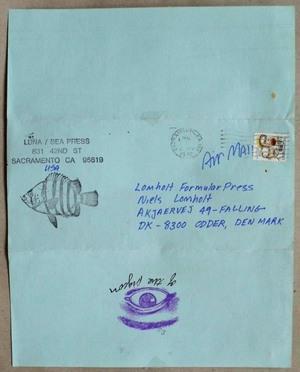 LUNA / BEA PRESS
831 42ND ST
SACRAMENTO CA 95819
USA
AIR MAIL
Lomholt Formular Press
Niels Lomholt
AKJAERVEJ 49-FALLING
DK-8300 ODDER, DENMARK
of the pigeon